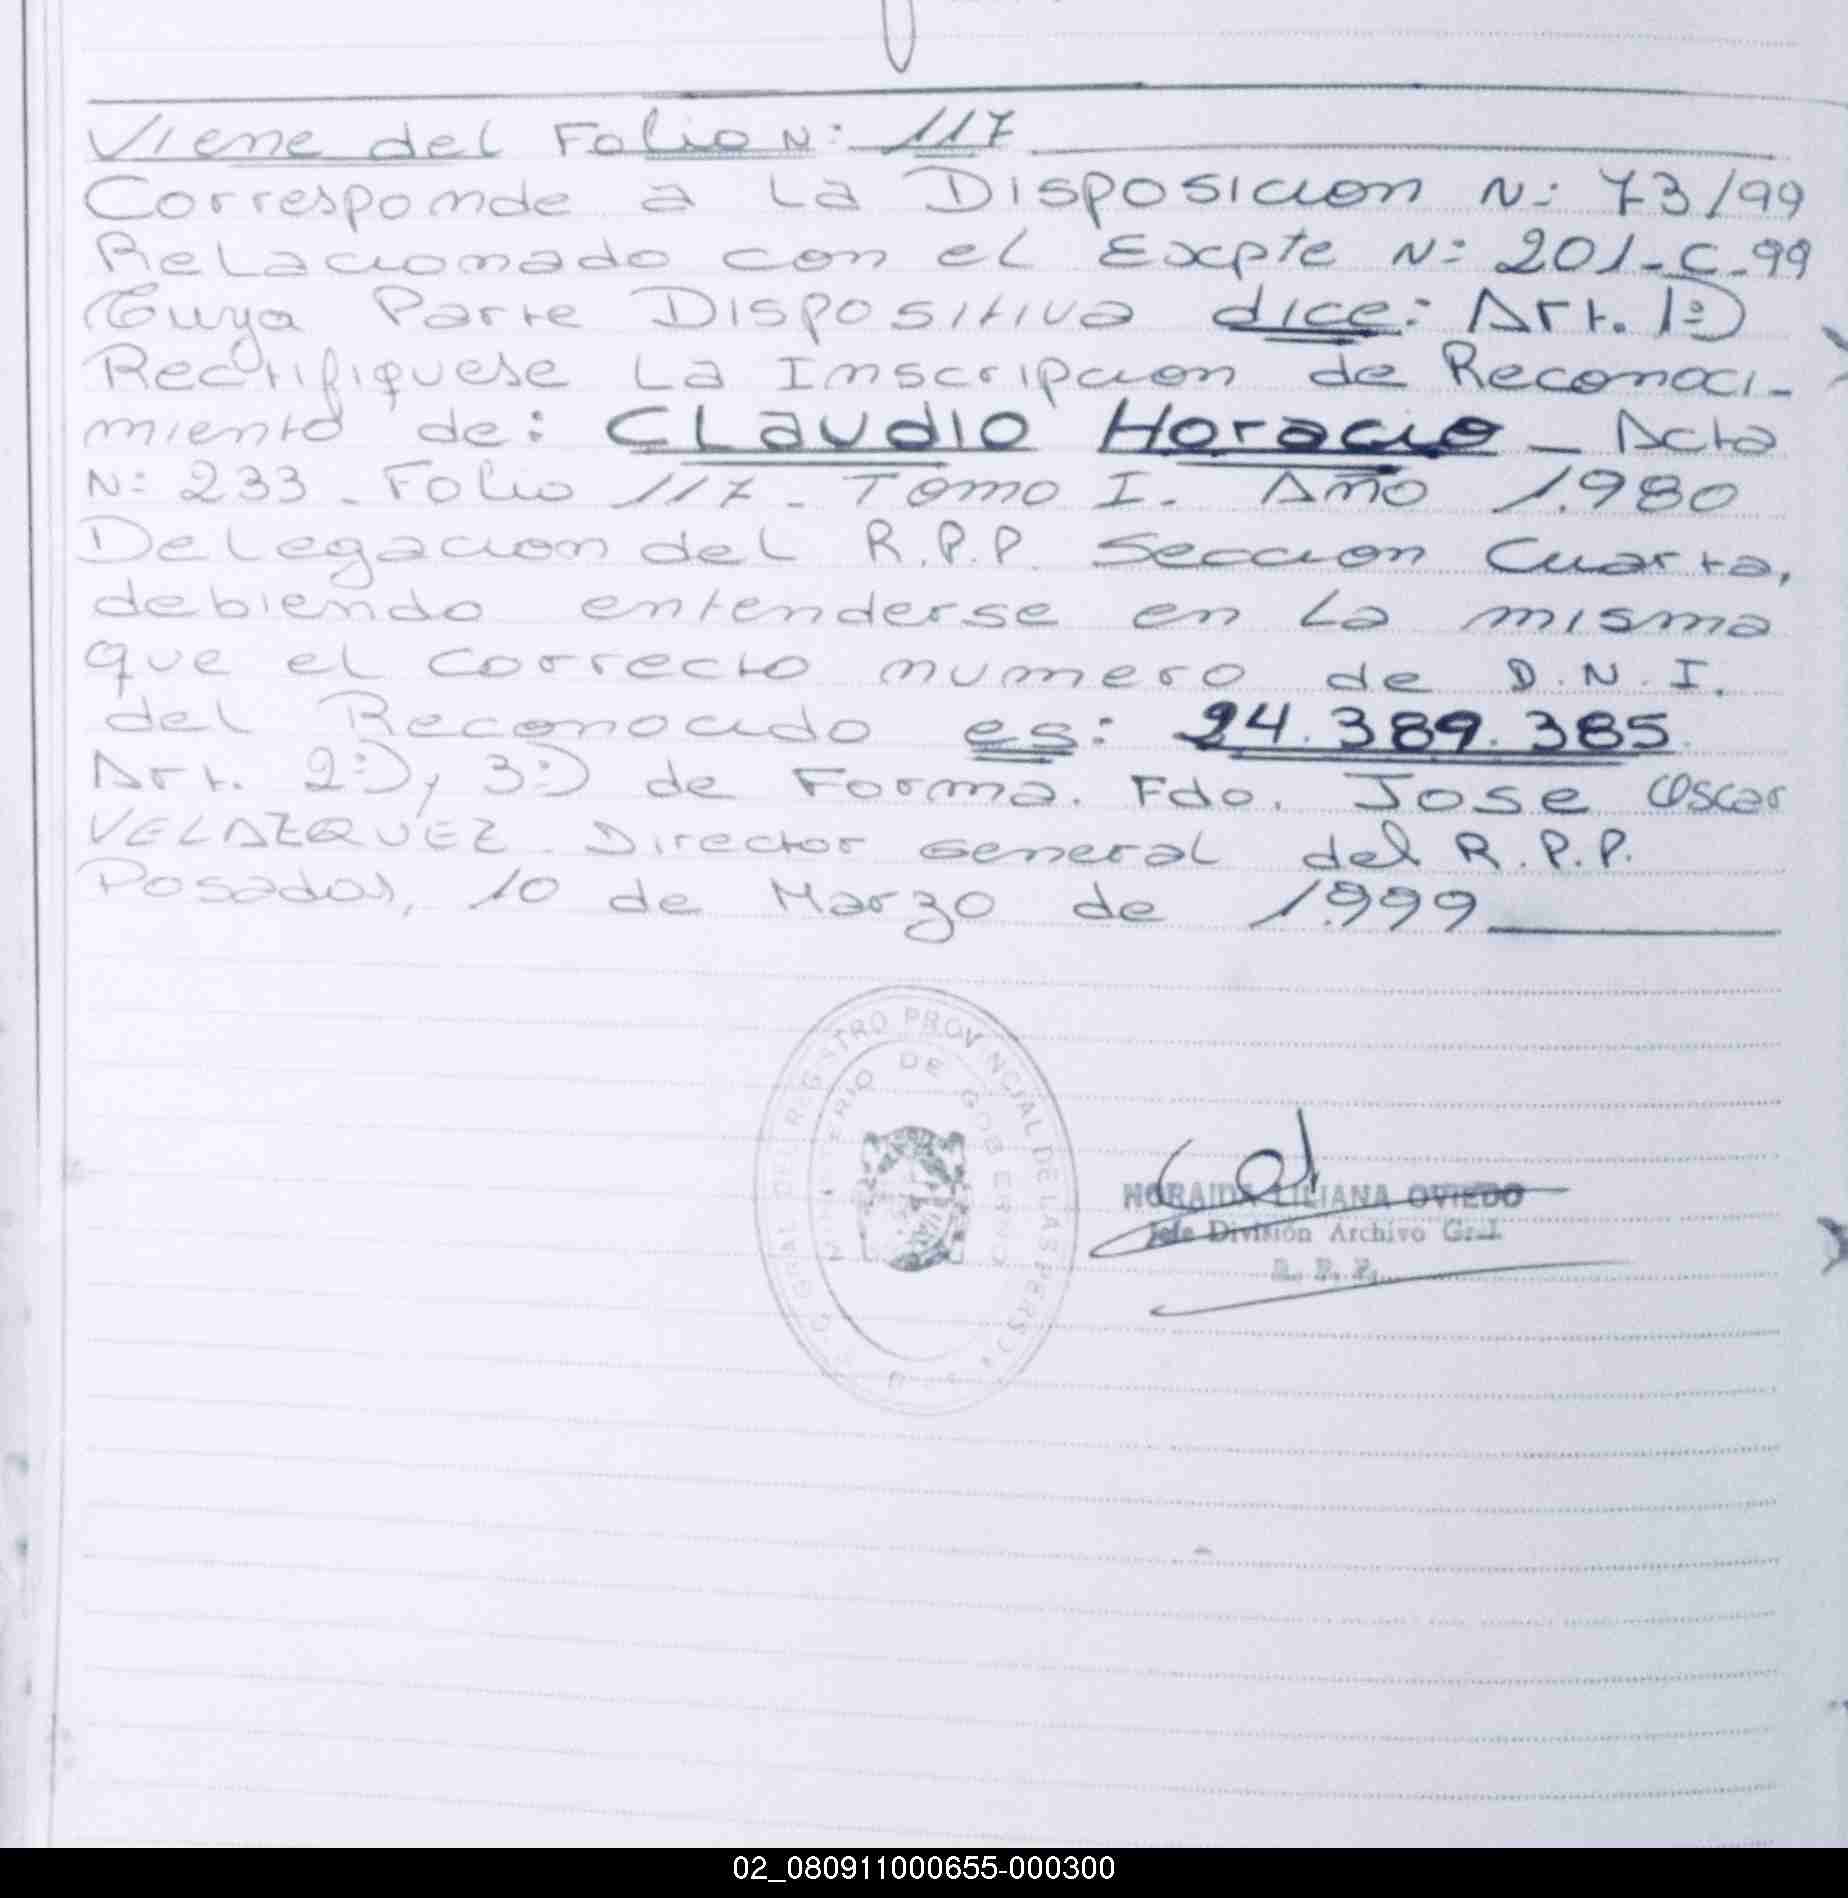 Viene del Folio N: 117
Corresponde a La Disposicion N: 73/99
Relacionado con el Expte N: 201-C-99
Cuya Parte Dispositiva dice: Art. 1:)
Rectifiquese La Inscripcion de Reconoci-
miento de: CLaudio Horacio - Acta
N: 233 - Folio 117 - Tomo I. Año 1.980
Delegacion del R.P.P. Seccion Cuarta,
debiendo entenderse en La misma
que el correcto numero de D.N.I.
del Reconocido es: 24.389.385.
Art. 2:), y 3:) de Forma. Fdo. Jose Oscar
VELAZQUEZ - Director General del R.P.P.
Posadas, 10 de Marzo de 1.999
GRAL DEL REGISTRO PROVINCIAL DE LAS PERS
MINISTERIO DE GOBIERNO
NORAIDA LILIANA OVIEDO
Jefe División Archivo Gral.
R. P. P.
02_080911000655-000300